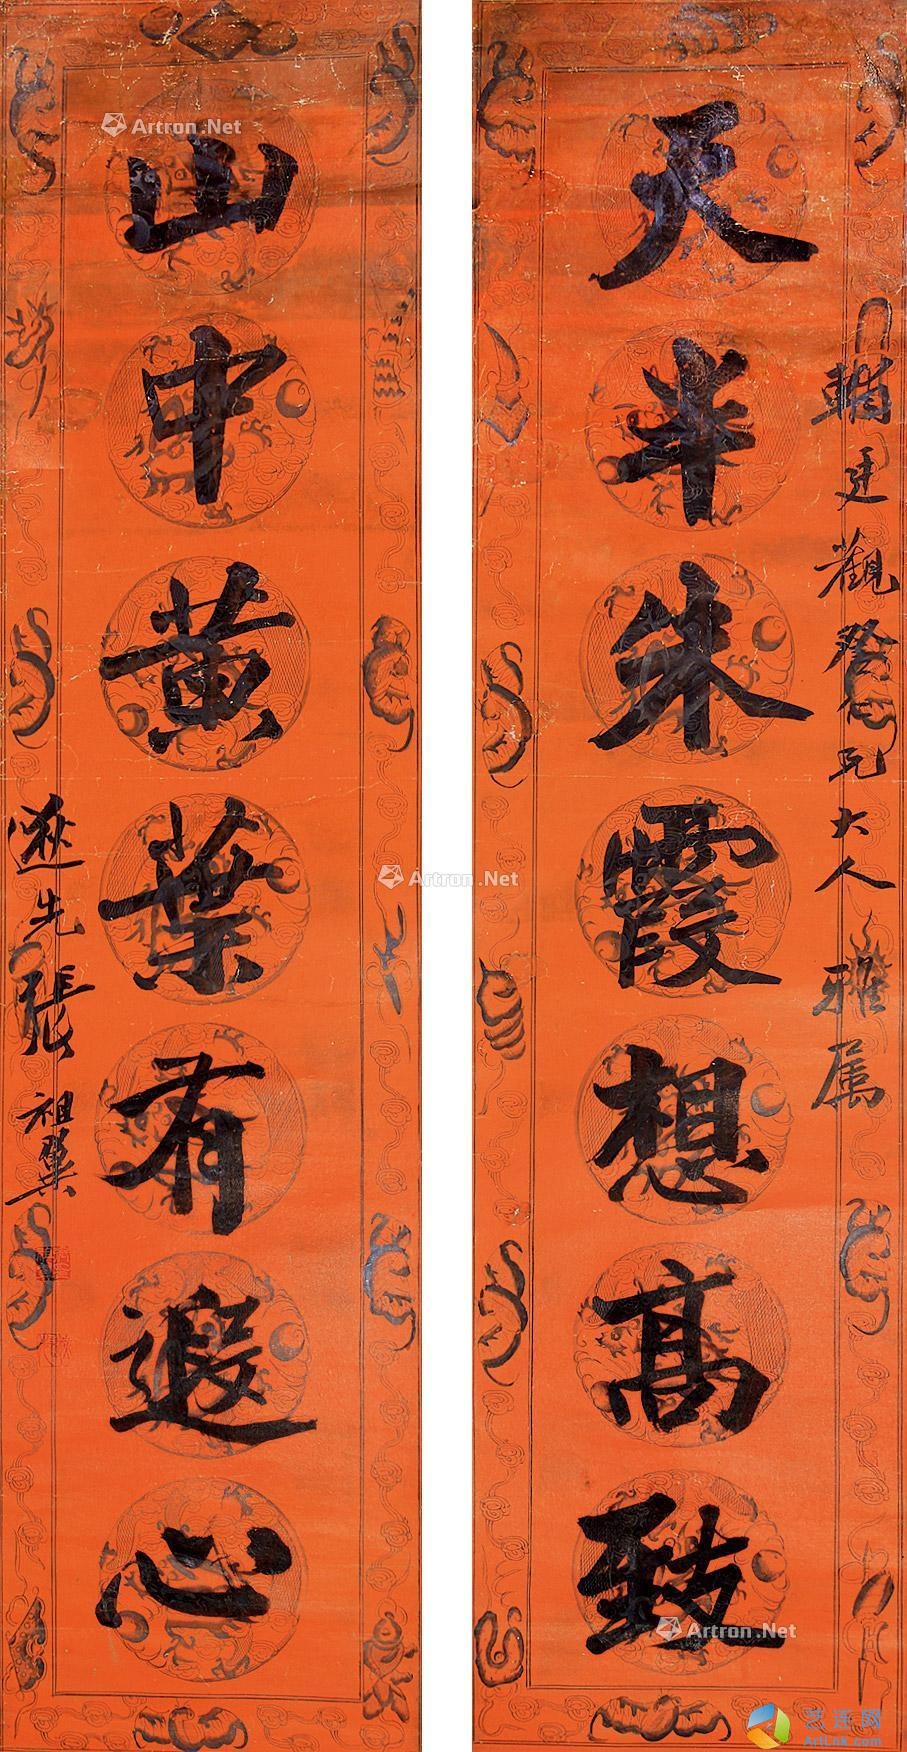 天半朱霞想高致
輔廷觀察仁兄大人雅属
山中黄葉有遐心
逖先張祖翼
Artron.Net
Artron.Net
Artron.Net
Artron.Net
艺连网
ArtLnk.com